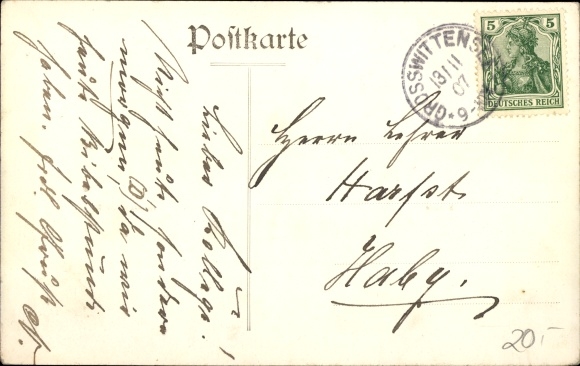 Postkarte
GROSSWITTENSEE
13 11
07
5 5
DEUTSCHES REICH
Herrn Lehrer
Harfst
Haby.
Lieber Kollege!
Nicht heute sondern
morgen, da wir
heute
haben. Frdl. Gruß
N.
20,-